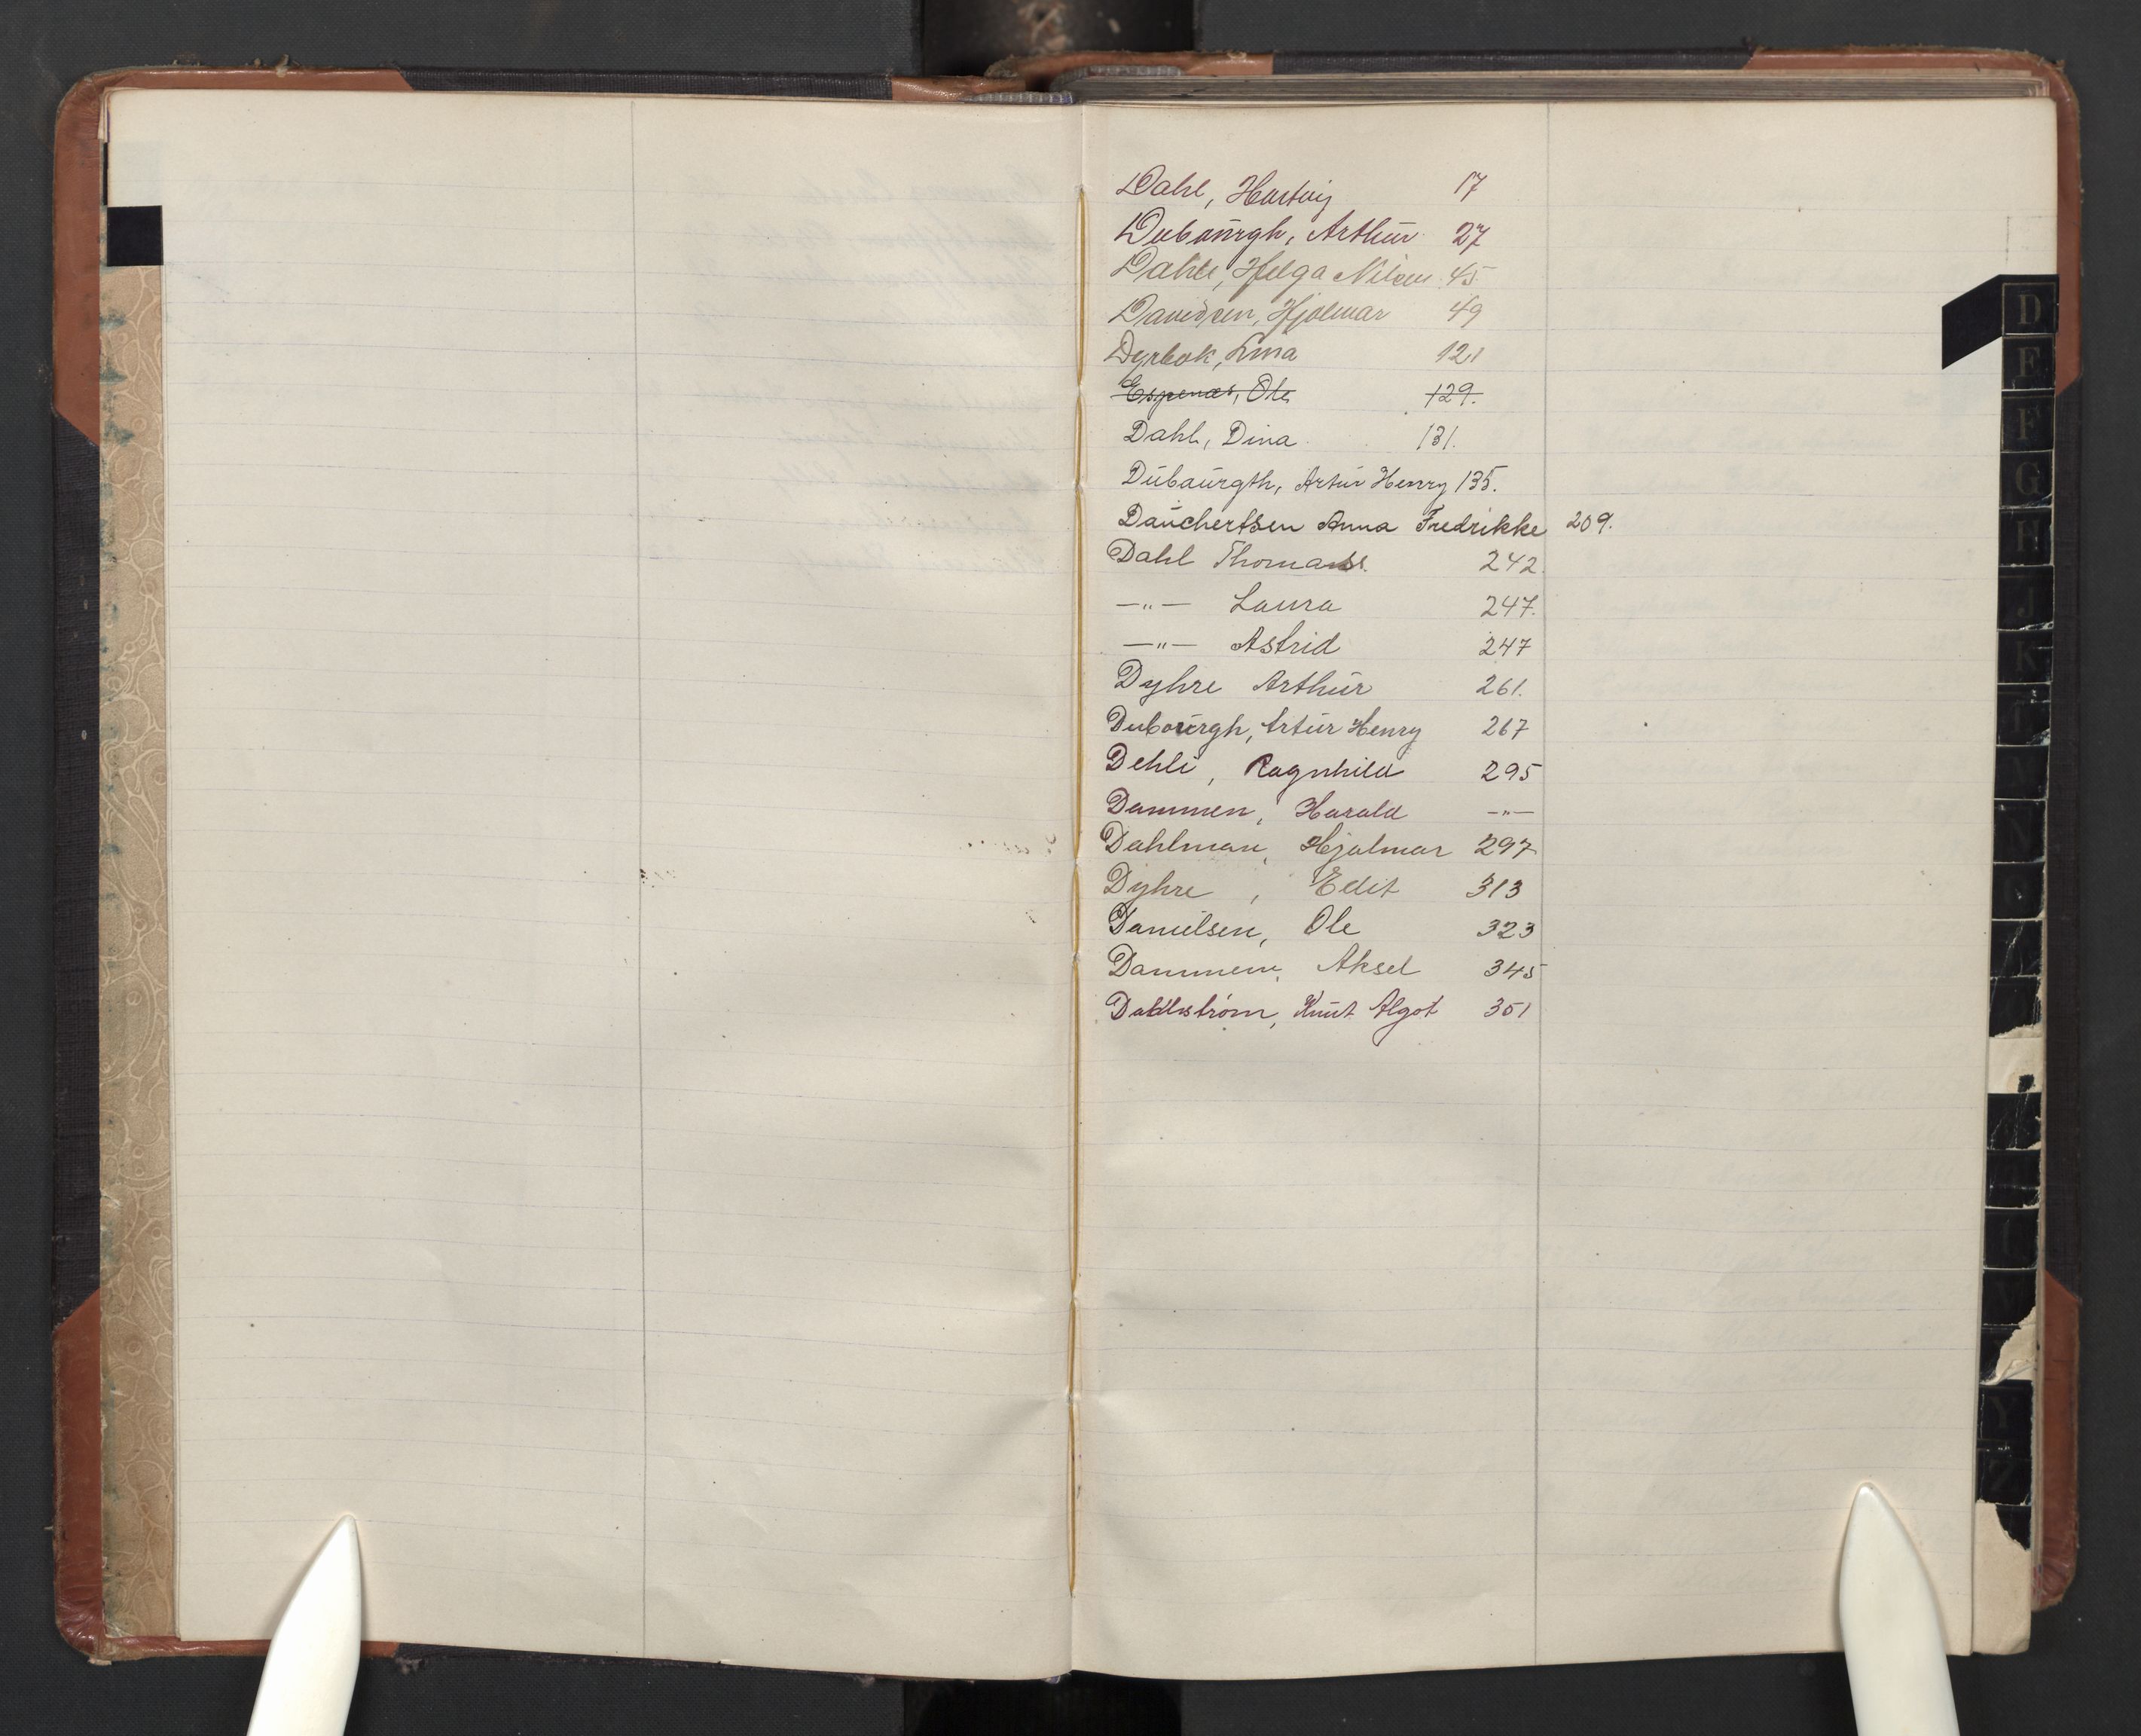 Dahl, Hartvig 17
Dubourgh, Arthur 27
Dahle, Helga Nilsen 45
Davidsen, Hjalmar 49
Dyrbok, Lina 121
Espenæs, Ole 129.
Dahl, Dina 131.
Dubaurgth, Artur Henry 135.
Dauchertsen Anna Fredrikke 209.
Dahl Thomas 242.
—"— Laura 247.
—"— Astrid 247
Dyhre Arthur 261.
Dubourgh, Artur Henry 267
Dehli, Ragnhild 295
Dammen, Harald —"—
Dahlman, Hjalmar 297
Dyhre, Edit 313
Danielsen, Ole 323
Dammen, Aksel 345
Dahlstrøm, Knut Algot 351
D
E
F
G
H
J
K
Y
Z